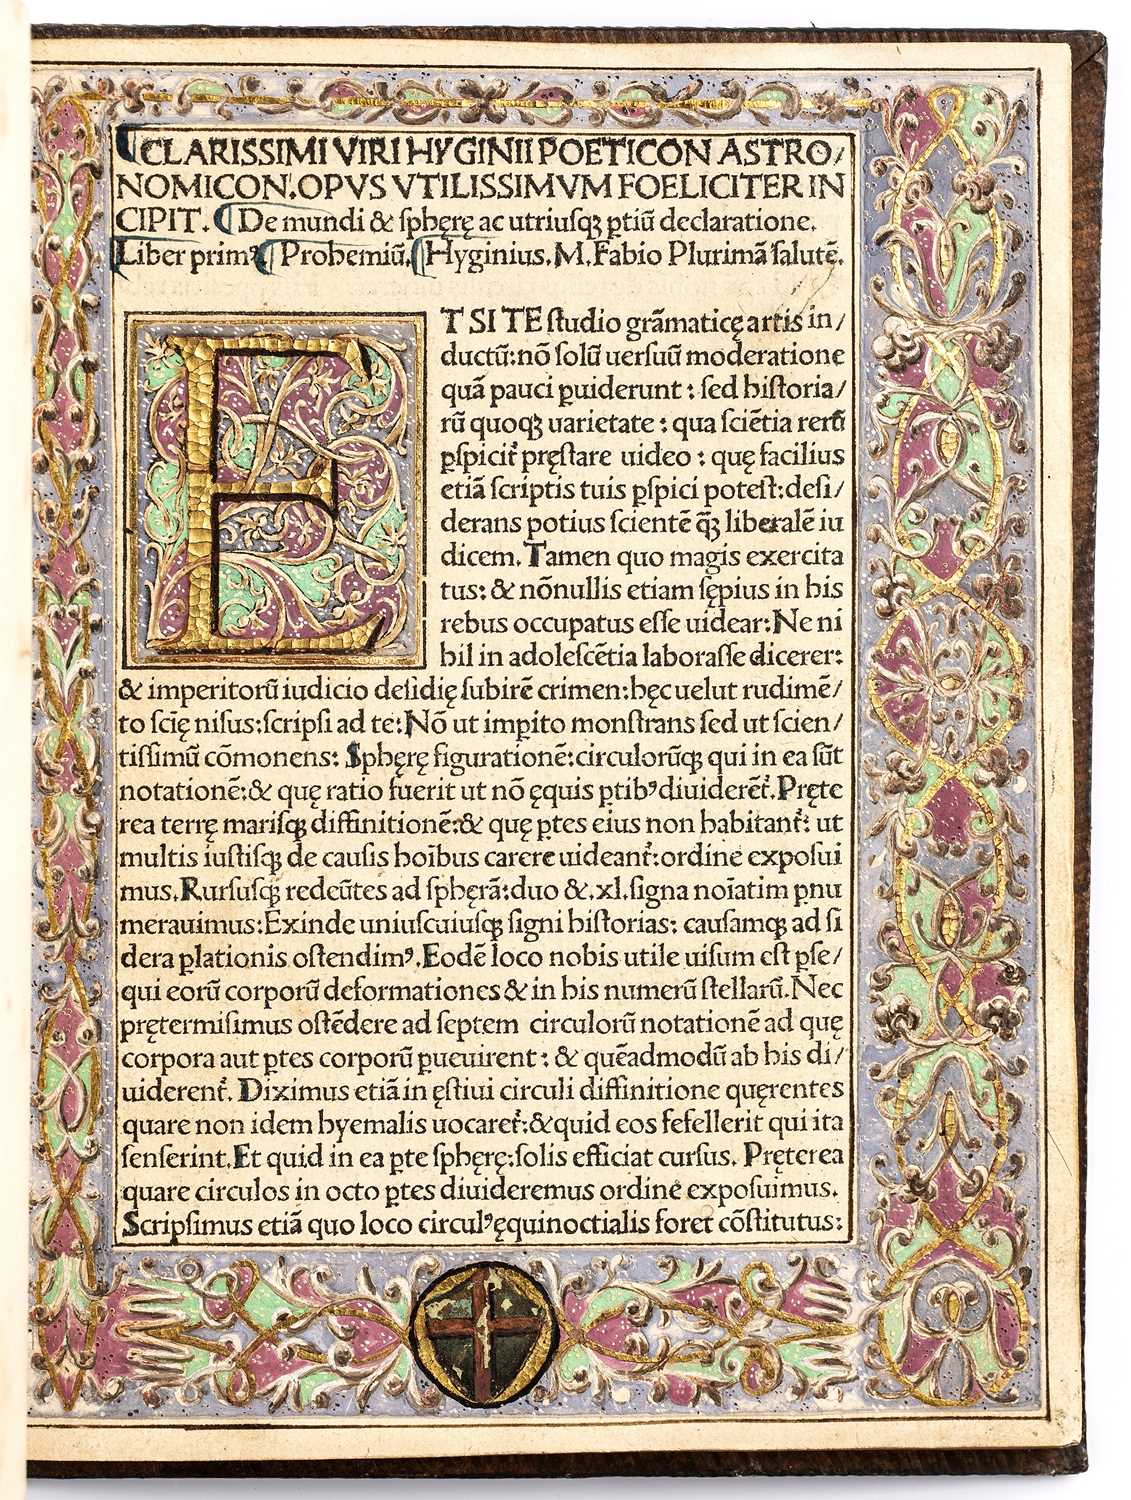 ¶CLARISSIMI VIRI HYGINII POETICON ASTRO/
NOMICON. OPVS VTILISSIMVM FOELICITER IN
CIPIT. ¶De mundi & sphęrę ac utriusqꝫ ꝑtiū declaratione.
Liber primꝰ ¶Prohemiū. ¶Hyginius. M. Fabio Plurimā salutē.
ET SI TE studio grāmaticę artis in/
ductū: nō solū uersuū moderatione
quā pauci puiderunt: sed historia/
rū quoqꝫ uarietate: qua sciētia rerū
ꝑspicit᷑ pręstare uideo: quę facilius
etiā scriptis tuis ꝑspici potest: desi/
derans potius scientē q̄ꝫ liberalē iu
dicem. Tamen quo magis exercita
tus: & nōnullis etiam sępius in his
rebus occupatus esse uidear: Ne ni
hil in adolescētia laborasse dicerer:
& imperitorū iudicio desidię subirē crimen: hęc uelut rudimē/
to scię nisus: scripsi ad te: Nō ut impito monstrans sed ut scien/
tissimū cōmonens: Sphęrę figurationē: circulorūqꝫ qui in ea sūt
notationē: & quę ratio fuerit ut nō ęquis ꝑtibꝰ diuideret᷑. Pręte
rea terrę marisqꝫ diffinitionē: & quę ꝑtes eius non habitant᷑: ut
multis iustisqꝫ de causis hoībus carere uideant᷑: ordine exposui
mus. Rursusqꝫ redeūtes ad sphęrā: duo & .xl. signa noīatim pnu
merauimus: Exinde uniuscuiusqꝫ signi historias: causamqꝫ ad si
dera ꝑlationis ostendimꝰ. Eodē loco nobis utile uisum est ꝑse/
qui eorū corporū deformationes & in his numerū stellarū. Nec
prętermisimus ostēdere ad septem circulorū notationē ad quę
corpora aut ꝑtes corporū pueuirent: & quēadmodū ab his di/
uiderent᷑. Diximus etiā in ęstiui circuli diffinitione quęrentes
quare non idem hyemalis uocaret᷑: & quid eos fefellerit qui ita
senserint. Et quid in ea ꝑte sphęrę: solis efficiat cursus. Pręterea
quare circulos in octo ꝑtes diuideremus ordine exposuimus.
Scripsimus etiā quo loco circulꝰ ęquinoctialis foret cōstitutus: